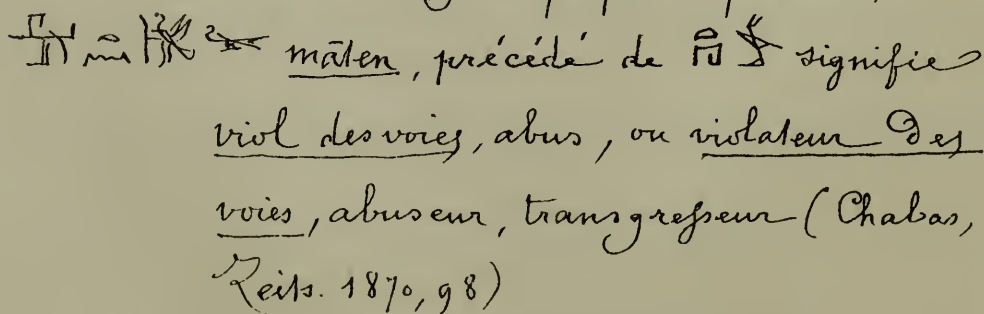 māten, précédé de signifie
viol des voies, abus, ou violateur des
voies, abuseur, transgresseur (Chabas,
Zeits. 1870, 98)